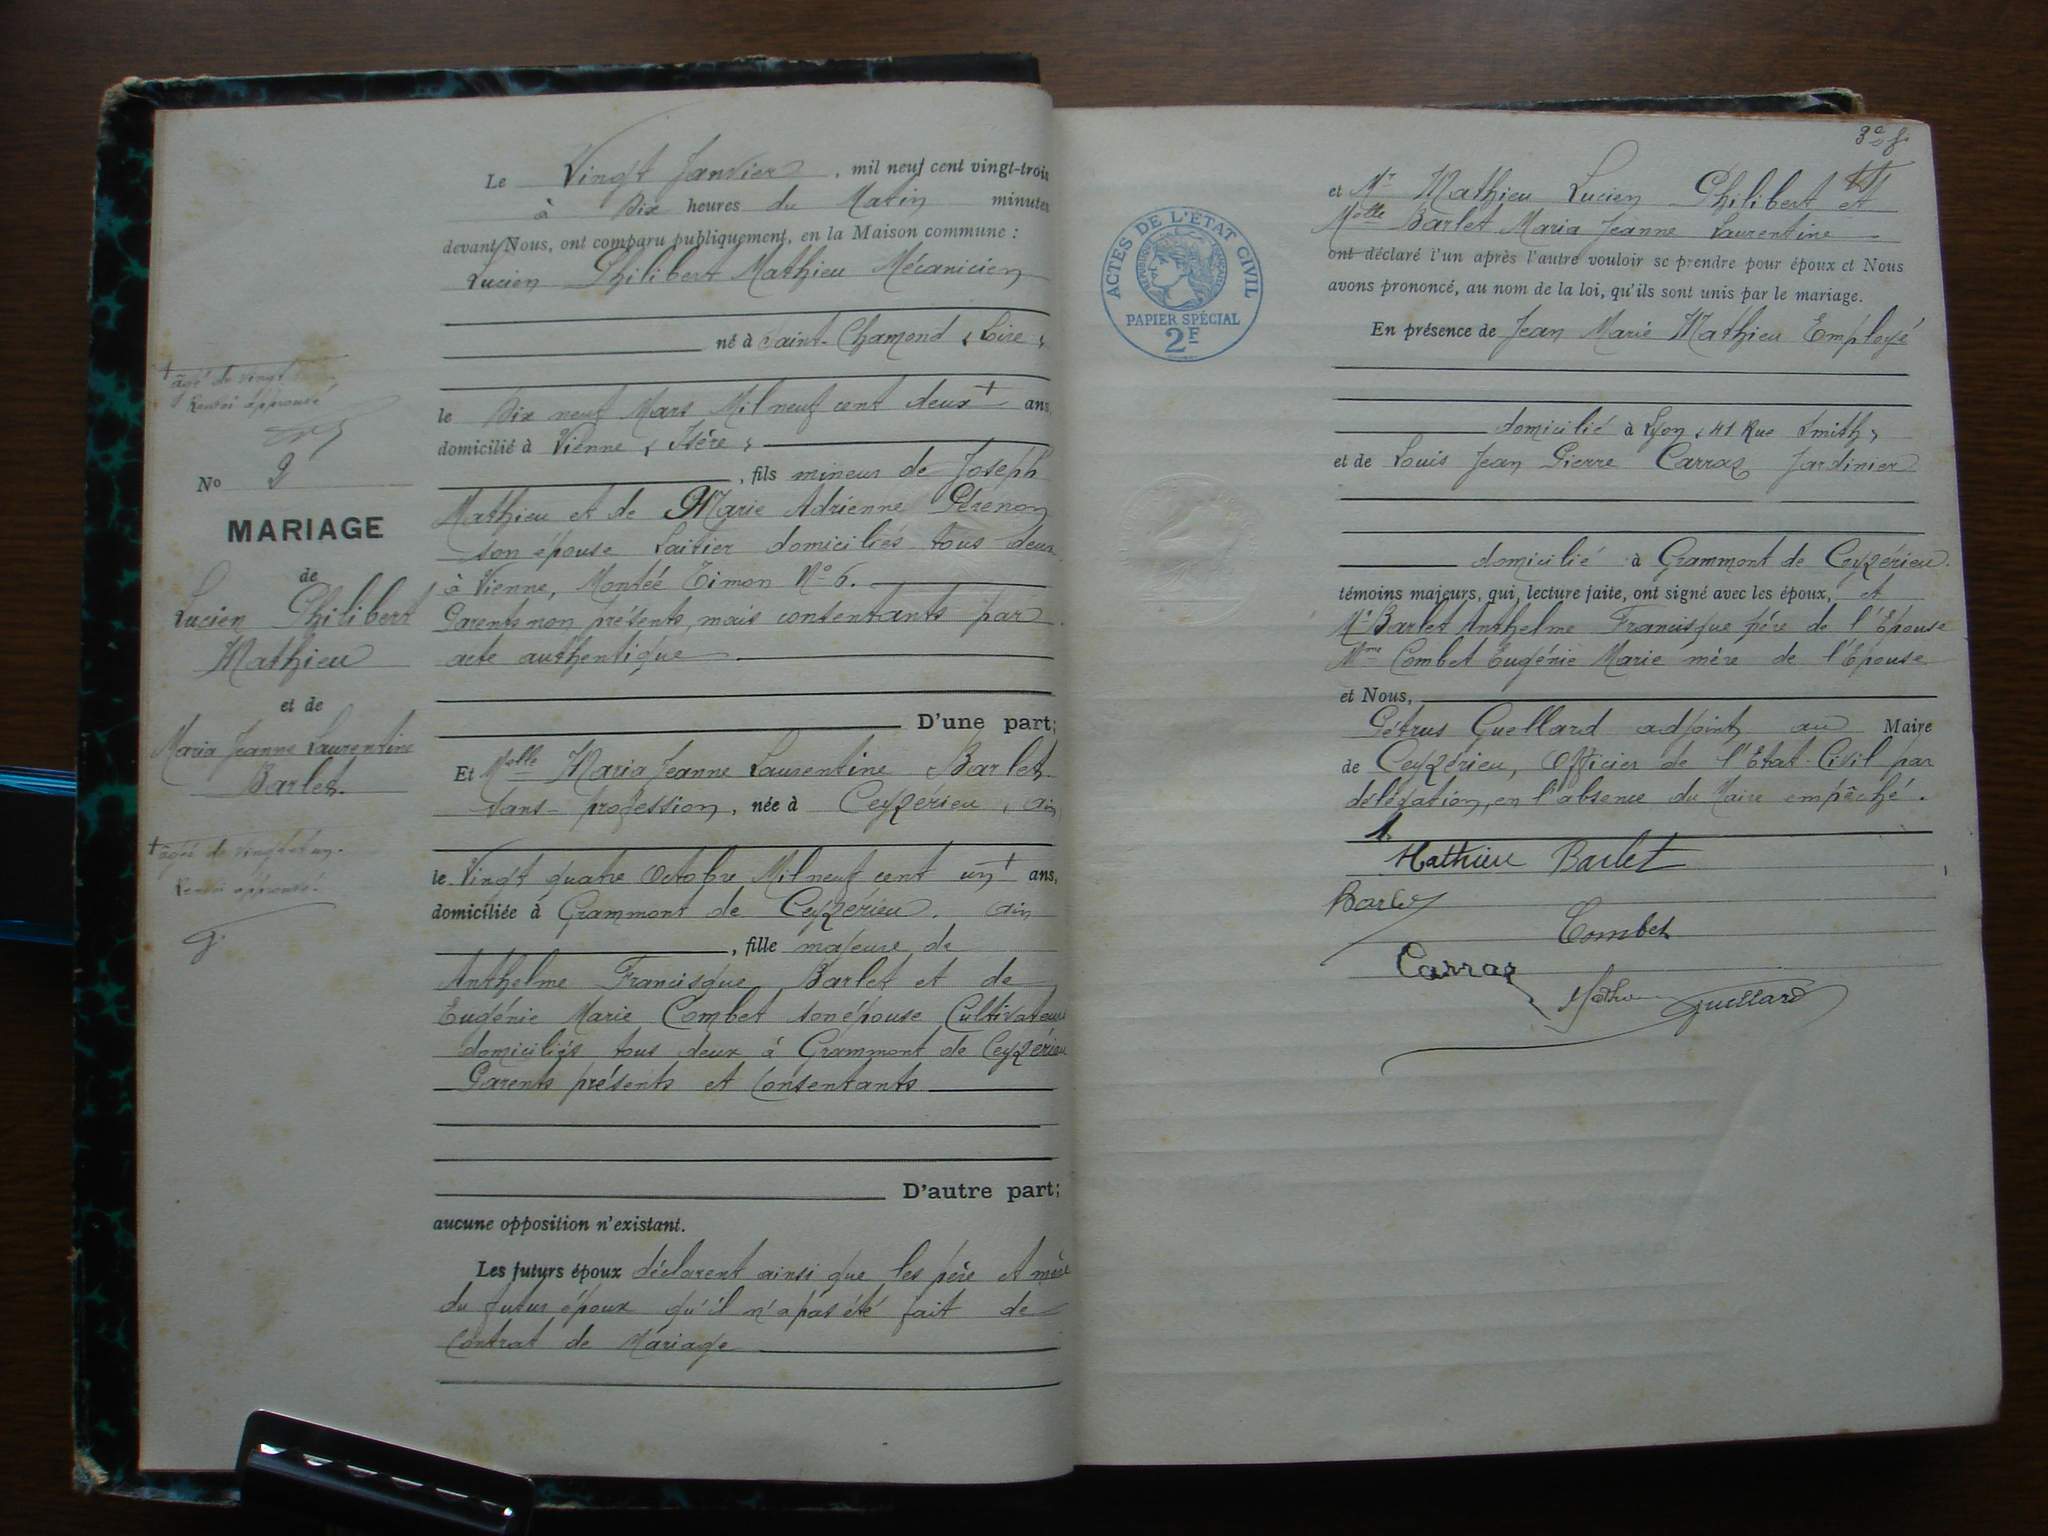 Le Vingt Janvier, mil neuf cent vingt-trois
à Dix heures du Matin minutes
devant Nous, ont comparu publiquement, en la Maison commune :
Lucien Philibert Mathieu Mécanicien
né à Saint-Chamond (Loire)
+ âgé de vingt
Renvoi approuvé
le Dix neuf Mars Mil neuf cent deux + ans,
domicilié à Vienne (Isère)
No 2
MARIAGE
de
Lucien Philibert
Mathieu
et de
Maria Jeanne Laurentine
Barlet.
, fils mineur de Joseph
Mathieu et de Marie Adrienne Pérenon
son épouse Laitier domiciliés tous deux
à Vienne, Montée Timon No 6.
Parents non présents, mais consentants par
acte authentique
D'une part;
Et Melle Maria Jeanne Laurentine Barlet
sans profession, née à Ceyzérieu, Ain
+ âgée de vingt et un.
Renvoi approuvé.
le Vingt quatre Octobre Mil neuf cent un + ans,
domiciliée à Grammont de Ceyzérieu. Ain
, fille majeure de
Anthelme Francisque Barlet et de
Eugénie Marie Combet son épouse Cultivateurs
domiciliés tous deux à Grammont de Ceyzérieu
Parents présents et Consentants
D'autre part;
aucune opposition n'existant.
Les futurs époux déclarent ainsi que les père et mère
du futur époux qu'il n'a pas été fait de
Contrat de Mariage
et Mr Mathieu Lucien Philibert et
Melle Barlet Maria Jeanne Laurentine
ont déclaré l'un après l'autre vouloir se prendre pour époux et Nous
avons prononcé, au nom de la loi, qu'ils sont unis par le mariage.
ACTES DE L'ÉTAT CIVIL
RÉPUBLIQUE FRANÇAISE
PAPIER SPÉCIAL
2F
En présence de Jean Marie Mathieu Employé
domicilié à Lyon (41 Rue Smith)
et de Louis Jean Pierre Carraz Jardinier
domicilié à Grammont de Ceyzérieu.
témoins majeurs, qui, lecture faite, ont signé avec les époux, et
Mr Barlet Anthelme Francisque père de l'Epouse
Mme Combet Eugénie Marie mère de l'Epouse
et Nous,
Pétrus Guellard adjoint au Maire
de Ceyzérieu, Officier de l'Etat-Civil par
délégation, en l'absence du Maire empêché.
Mathieu Barlet
Barlet
Combet
Carraz
Mathieu
Guellard